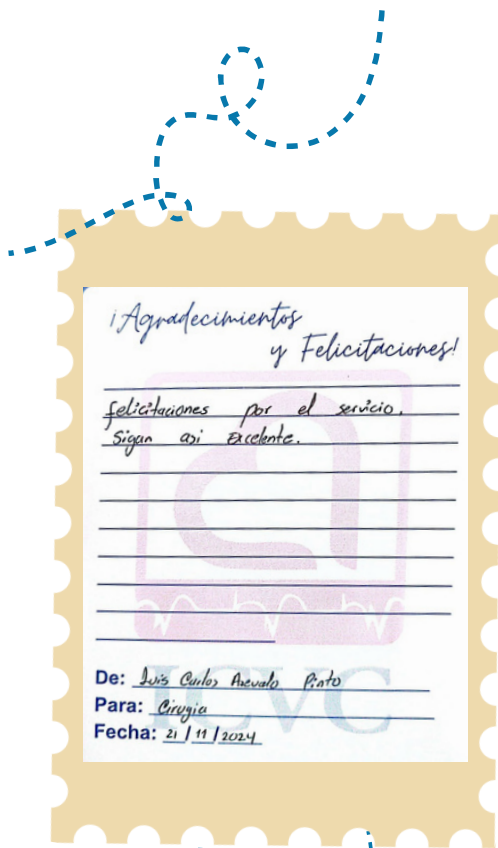 ¡Agradecimientos
y Felicitaciones!
felicitaciones por el servicio.
Sigan asi Excelente.
ICVC
De: Luis Carlos Arevalo Pinto
Para: Cirugia
Fecha: 21 / 11 / 2024